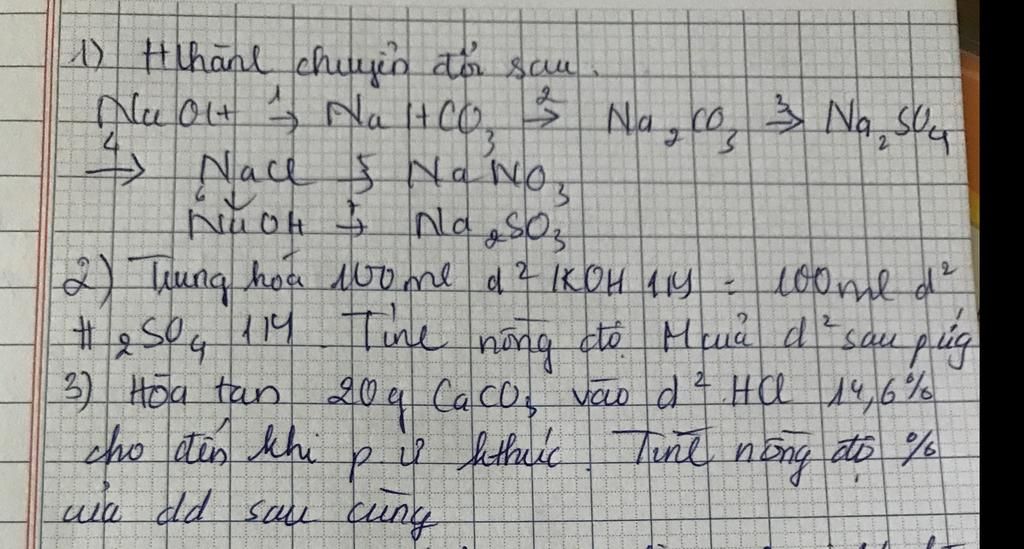 1) Hthành chuyển đổi sau.
NaOH 1→ NaHCO3 2→ Na2CO3 3→ Na2SO4
4→ NaCl 5 NaNO3
6↓ NaOH 7→ Na2SO3
2) Trung hoà 100ml d² KOH 1M = 100ml d²
H2SO4 1M. Tính nồng độ M của d² sau pứg
3) Hòa tan 20g CaCO3 vào d² HCl 14,6%
cho đến khi pứ kthúc. Tính nồng độ %
của dd sau cùng